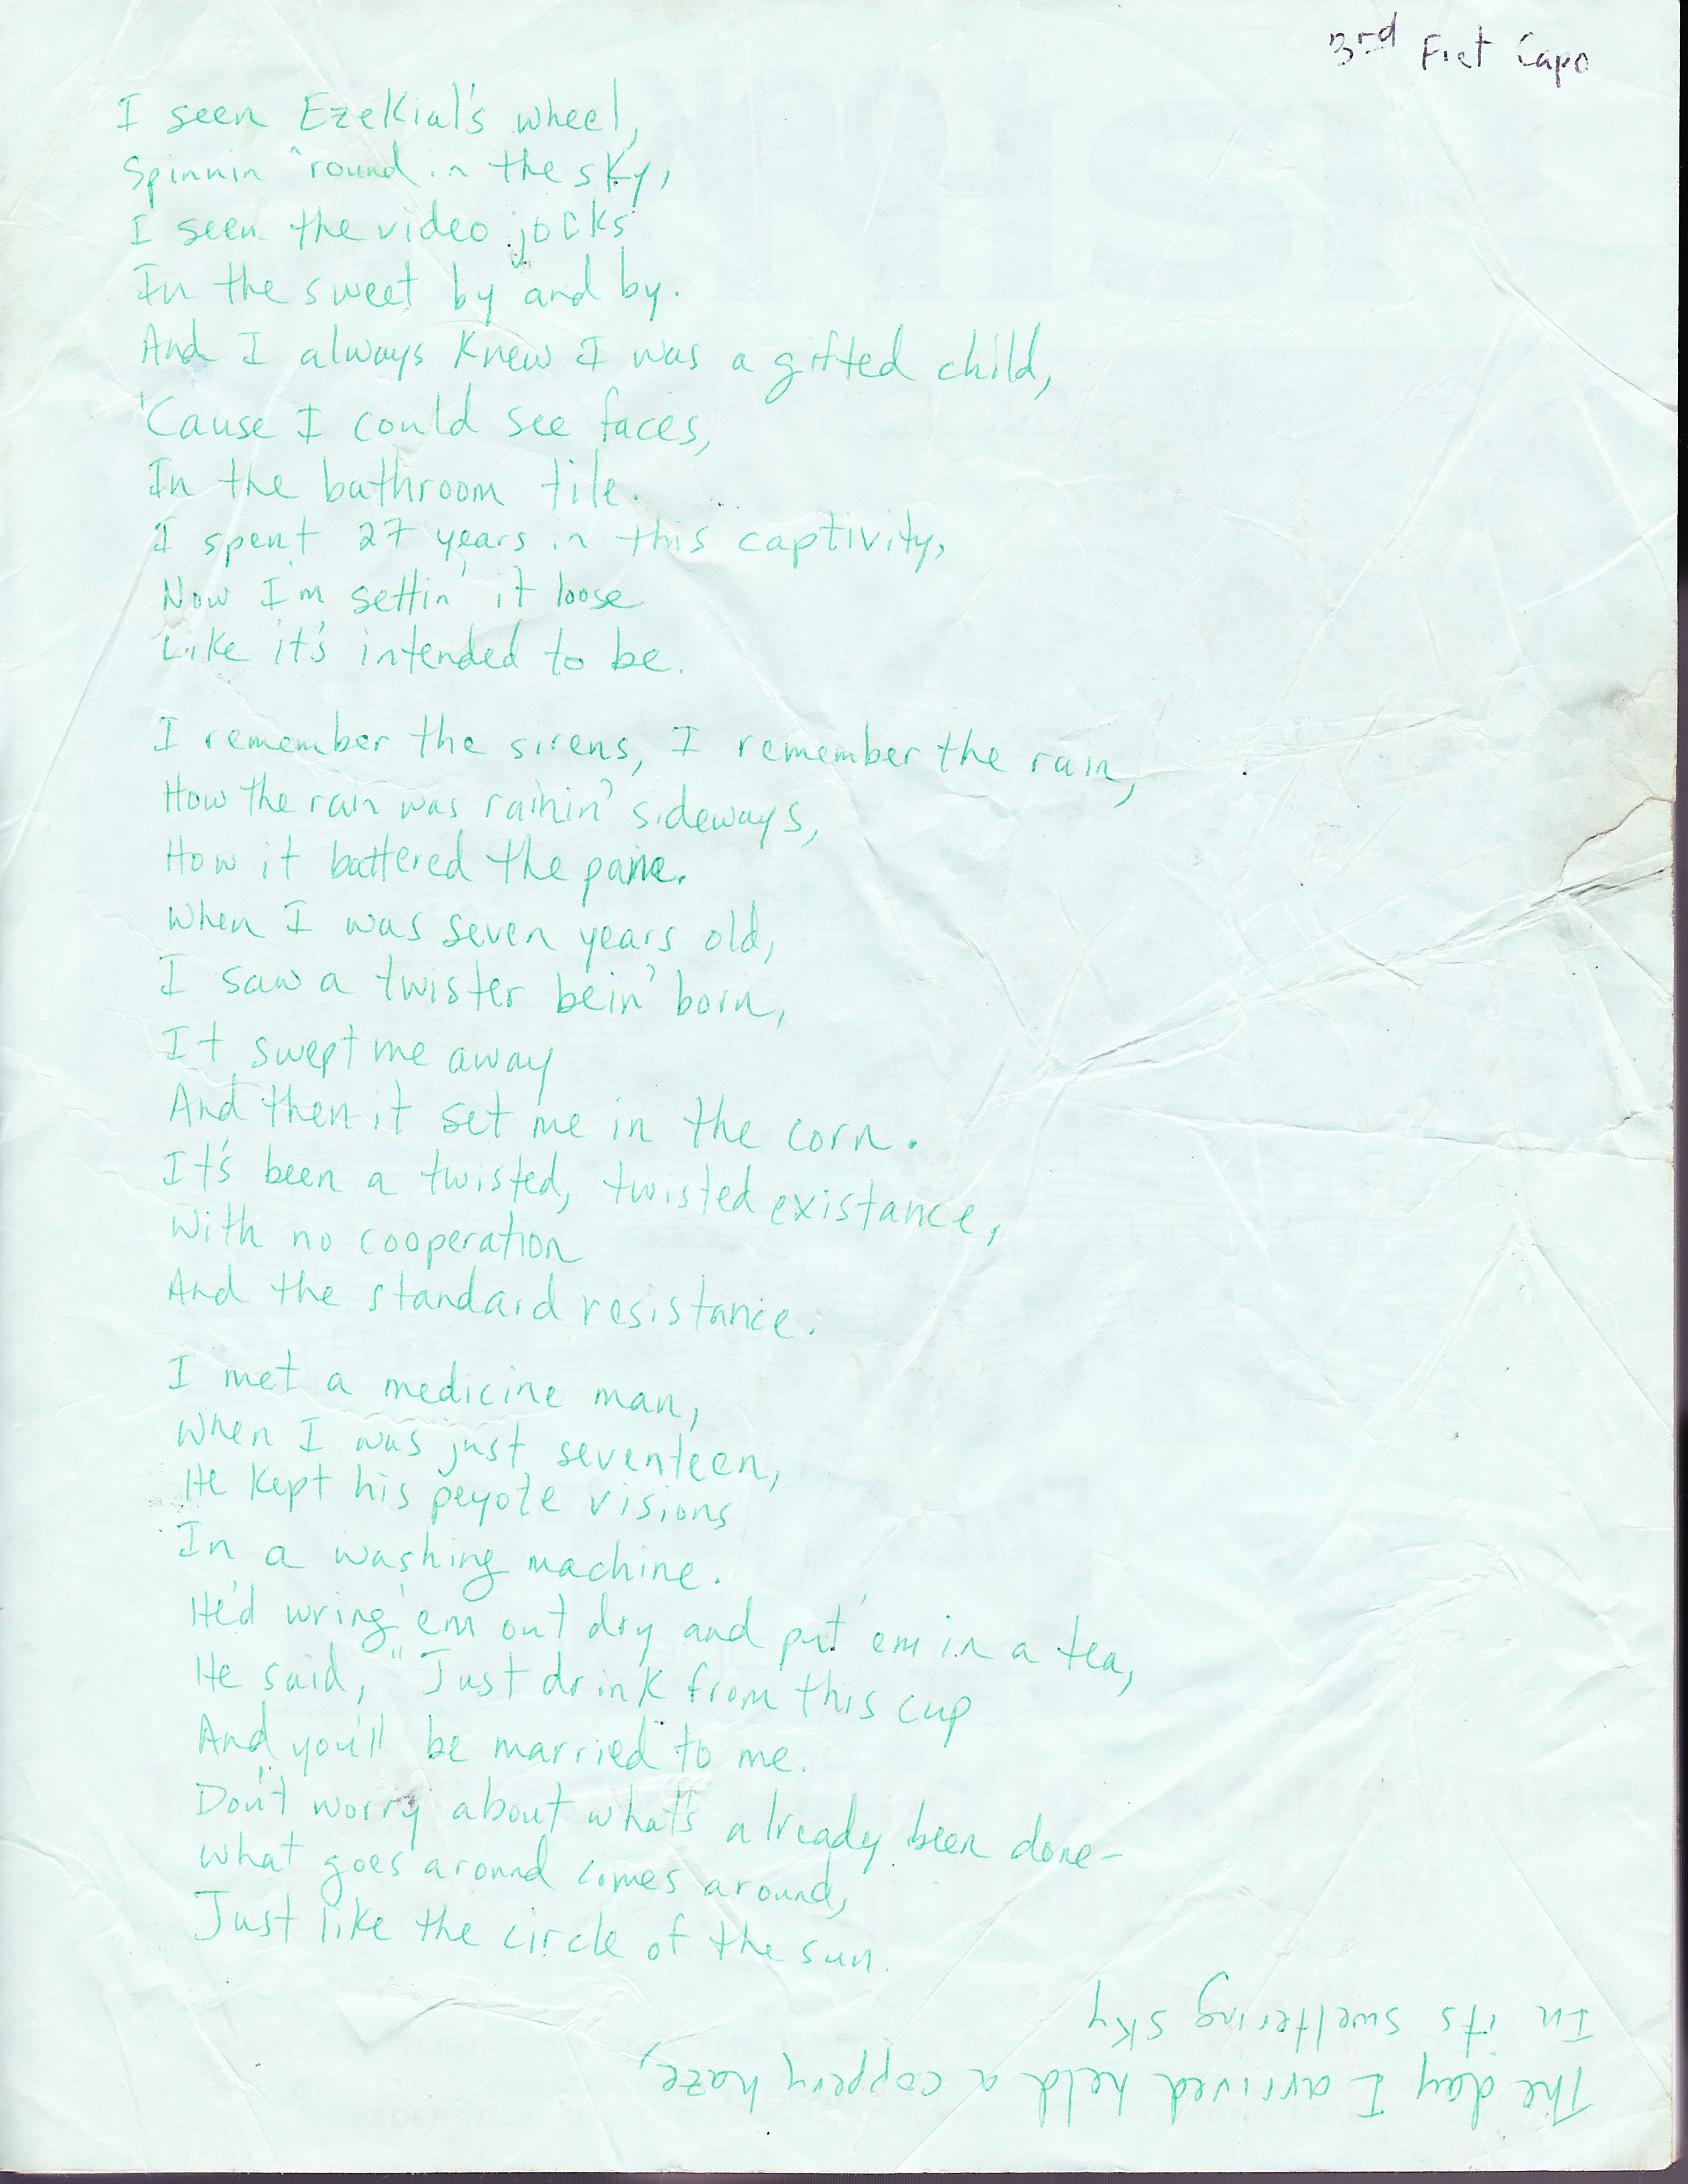 3rd Fret Capo
I seen Ezekial's wheel,
Spinnin 'round in the sky,
I seen the video jocks
In the sweet by and by.
And I always knew I was a gifted child,
'Cause I could see faces,
In the bathroom tile.
I spent 27 years in this captivity,
Now I'm settin' it loose
Like it's intended to be.
I remember the sirens, I remember the rain,
How the rain was rainin' sideways,
How it battered the pane.
When I was seven years old,
I saw a twister bein' born,
It swept me away
And then it set me in the corn.
It's been a twisted, twisted existance,
With no cooperation
And the standard resistance.
I met a medicine man,
When I was just seventeen,
He kept his peyote visions
In a washing machine.
He'd wring 'em out dry and put 'em in a tea,
He said, "Just drink from this cup
And you'll be married to me.
Don't worry about what's already been done-
What goes around comes around,
Just like the circle of the sun.
The day I arrived held a coppery haze,
In its sweltering sky